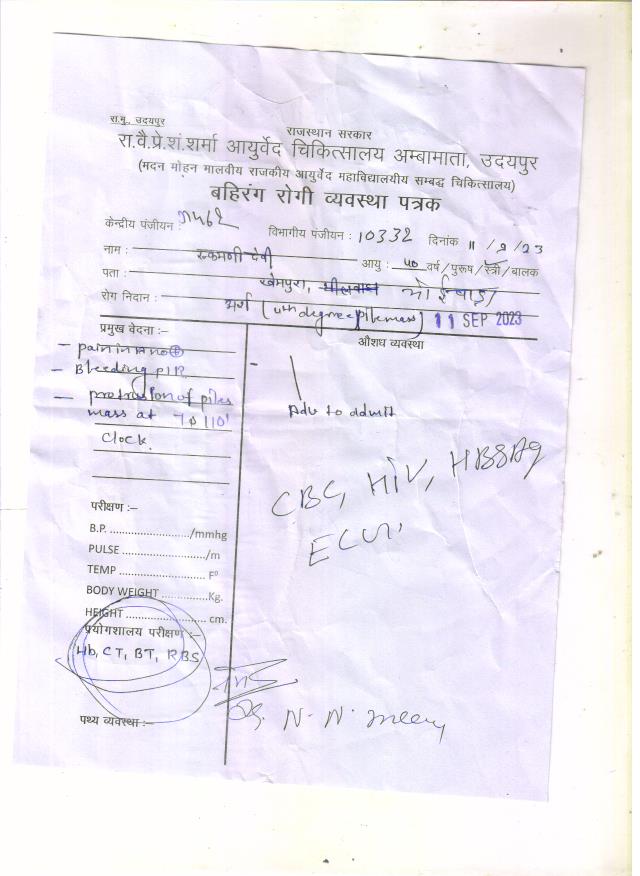 रा.मु., उदयपुर
राजस्थान सरकार
रा.वै.प्रे.शं.शर्मा आयुर्वेद चिकित्सालय अम्बामाता, उदयपुर
(मदन मोहन मालवीय राजकीय आयुर्वेद महाविद्यालयीय सम्बद्ध चिकित्सालय)
बहिरंग रोगी व्यवस्था पत्रक
केन्द्रीय पंजीयन : विभागीय पंजीयन : 10332 दिनांक 11/9/23
नाम : रुकमणी देवी आयु : 50 वर्ष/पुरूष/स्त्री/बालक
पता : खेमपुरा, भोईवाड़ा
रोग निदान : अर्श (4th degree pile mass) 11 SEP 2023
प्रमुख वेदना :–
औशध व्यवस्था
– pain in Ano ⊕
– Bleeding P/R
– protrusion of piles
mass at 7 & 11 0'
clock.
- Adv to admit
CBC, HIV, HBSAg
परीक्षण :–
B.P. ........................./mmhg
PULSE ........................./m
TEMP ......................... F⁰
BODY WEIGHT .............Kg.
HEIGHT ........................ cm.
प्रयोगशालय परीक्षण :–
Hb, CT, BT, RBS
पथ्य व्यवस्था :–